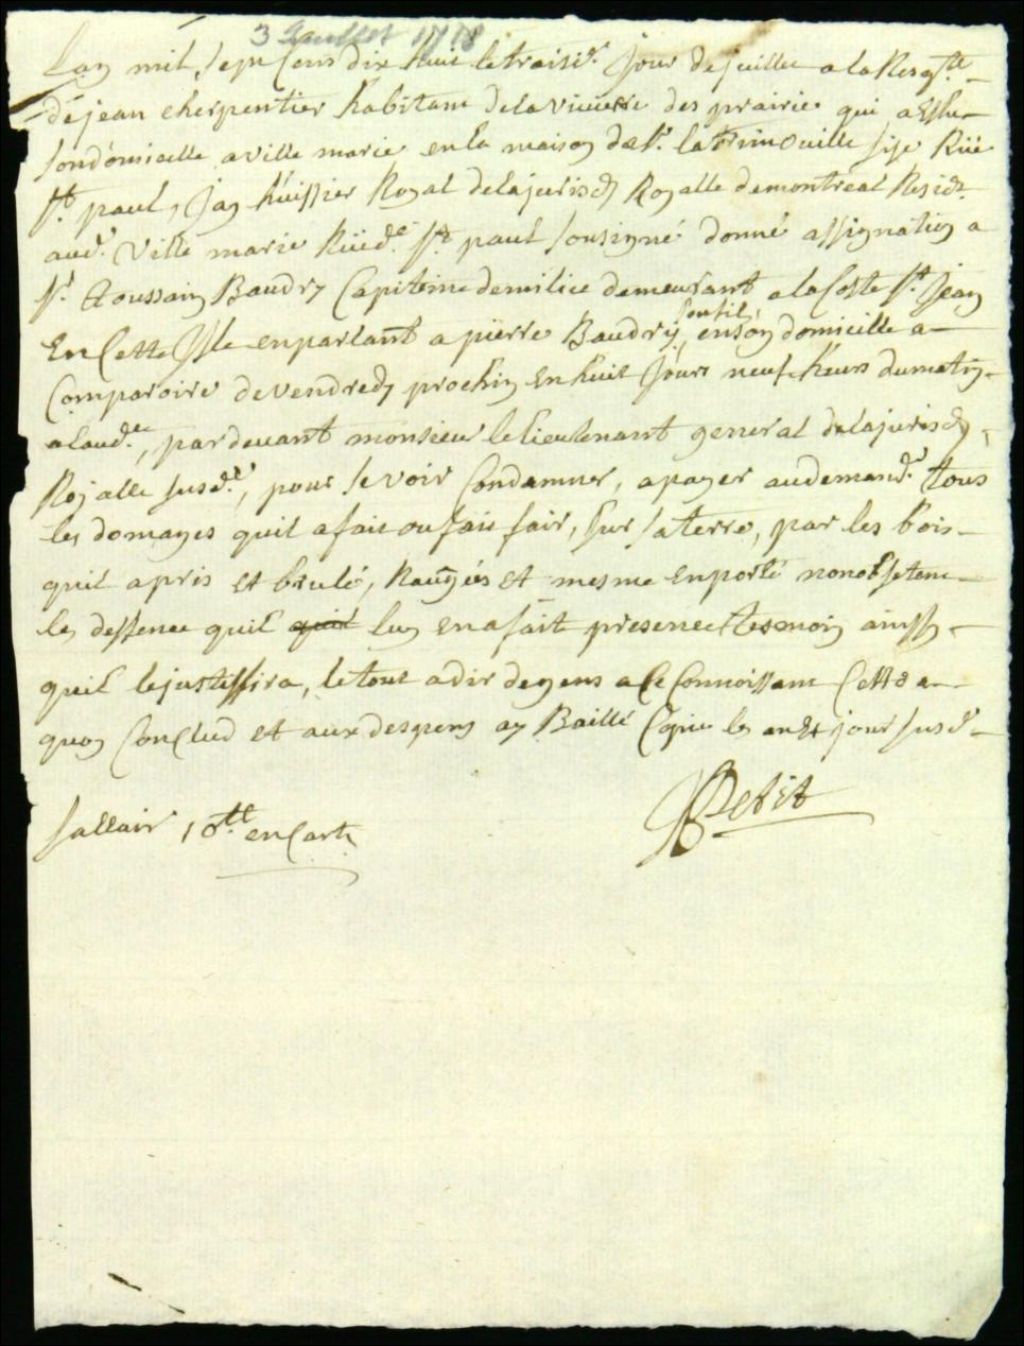 3 Juillet 1718
Lan mil sept Cens dix huit le troisie. Jour de juillet a la Resqte.
de jean cherpentier habitant de la riviere des prairie qui a Eslu
son domicille a ville marie en la maison de Sr. latrimouille sise Rüe
St. paul, Jay huissier Royal de la jurison Royalle de montreal Residt.
aud. Ville marie Rüe de. St. paul sousigné donné assignation a
Sr. Toussain Baudry Capiteine de milice demeurant a la Coste St. Jean
En Cette Isle en parlant a pierre Baudry son fils, en son domicille a
Comparoire de vendredy prochin En huit Jours neuf heurs du matin
a laude., par devant monsieur le lieutenant general de la jurison
Royalle susde., pour se voir Condamner, a payer au demandr. tous
les domages quil a fait ou fait fair, sur sa terre, par les bois
quil a pris et brulé, Raugés et mesme Enporté nonobstent
les deffence quil quil luy en a fait presence tesmoin ainssy
quil le justiffira, le tout a dir de gens a Ce Connoissant Cest a
quoy Conclud et aux despens ay Baillé Copie les an Et jour susd.
J Petit
sallair 10tt en Carte